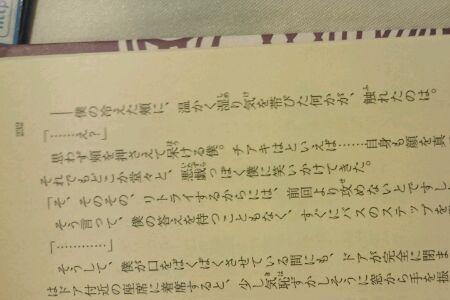 ――僕の冷えた頬に、温かく湿り気を帯びた何かが、触れたのは。
「……え？」
思わず頬を押さえて呆ける僕。チアキはといえば……自身も顔を真
それでもどこか堂々と、悪戯っぽく僕に笑いかけてきた。
「そ、そのその、リトライするからには、前回より攻めないとですし
そう言って、僕の答えを待つこともなく、すぐにバスのステップを
「…………」
そうして、僕が口をぱくぱくさせている間にも、ドアが完全に閉ま
はドア付近の座席に着席すると、少し気恥ずかしそうに窓から手を振
232